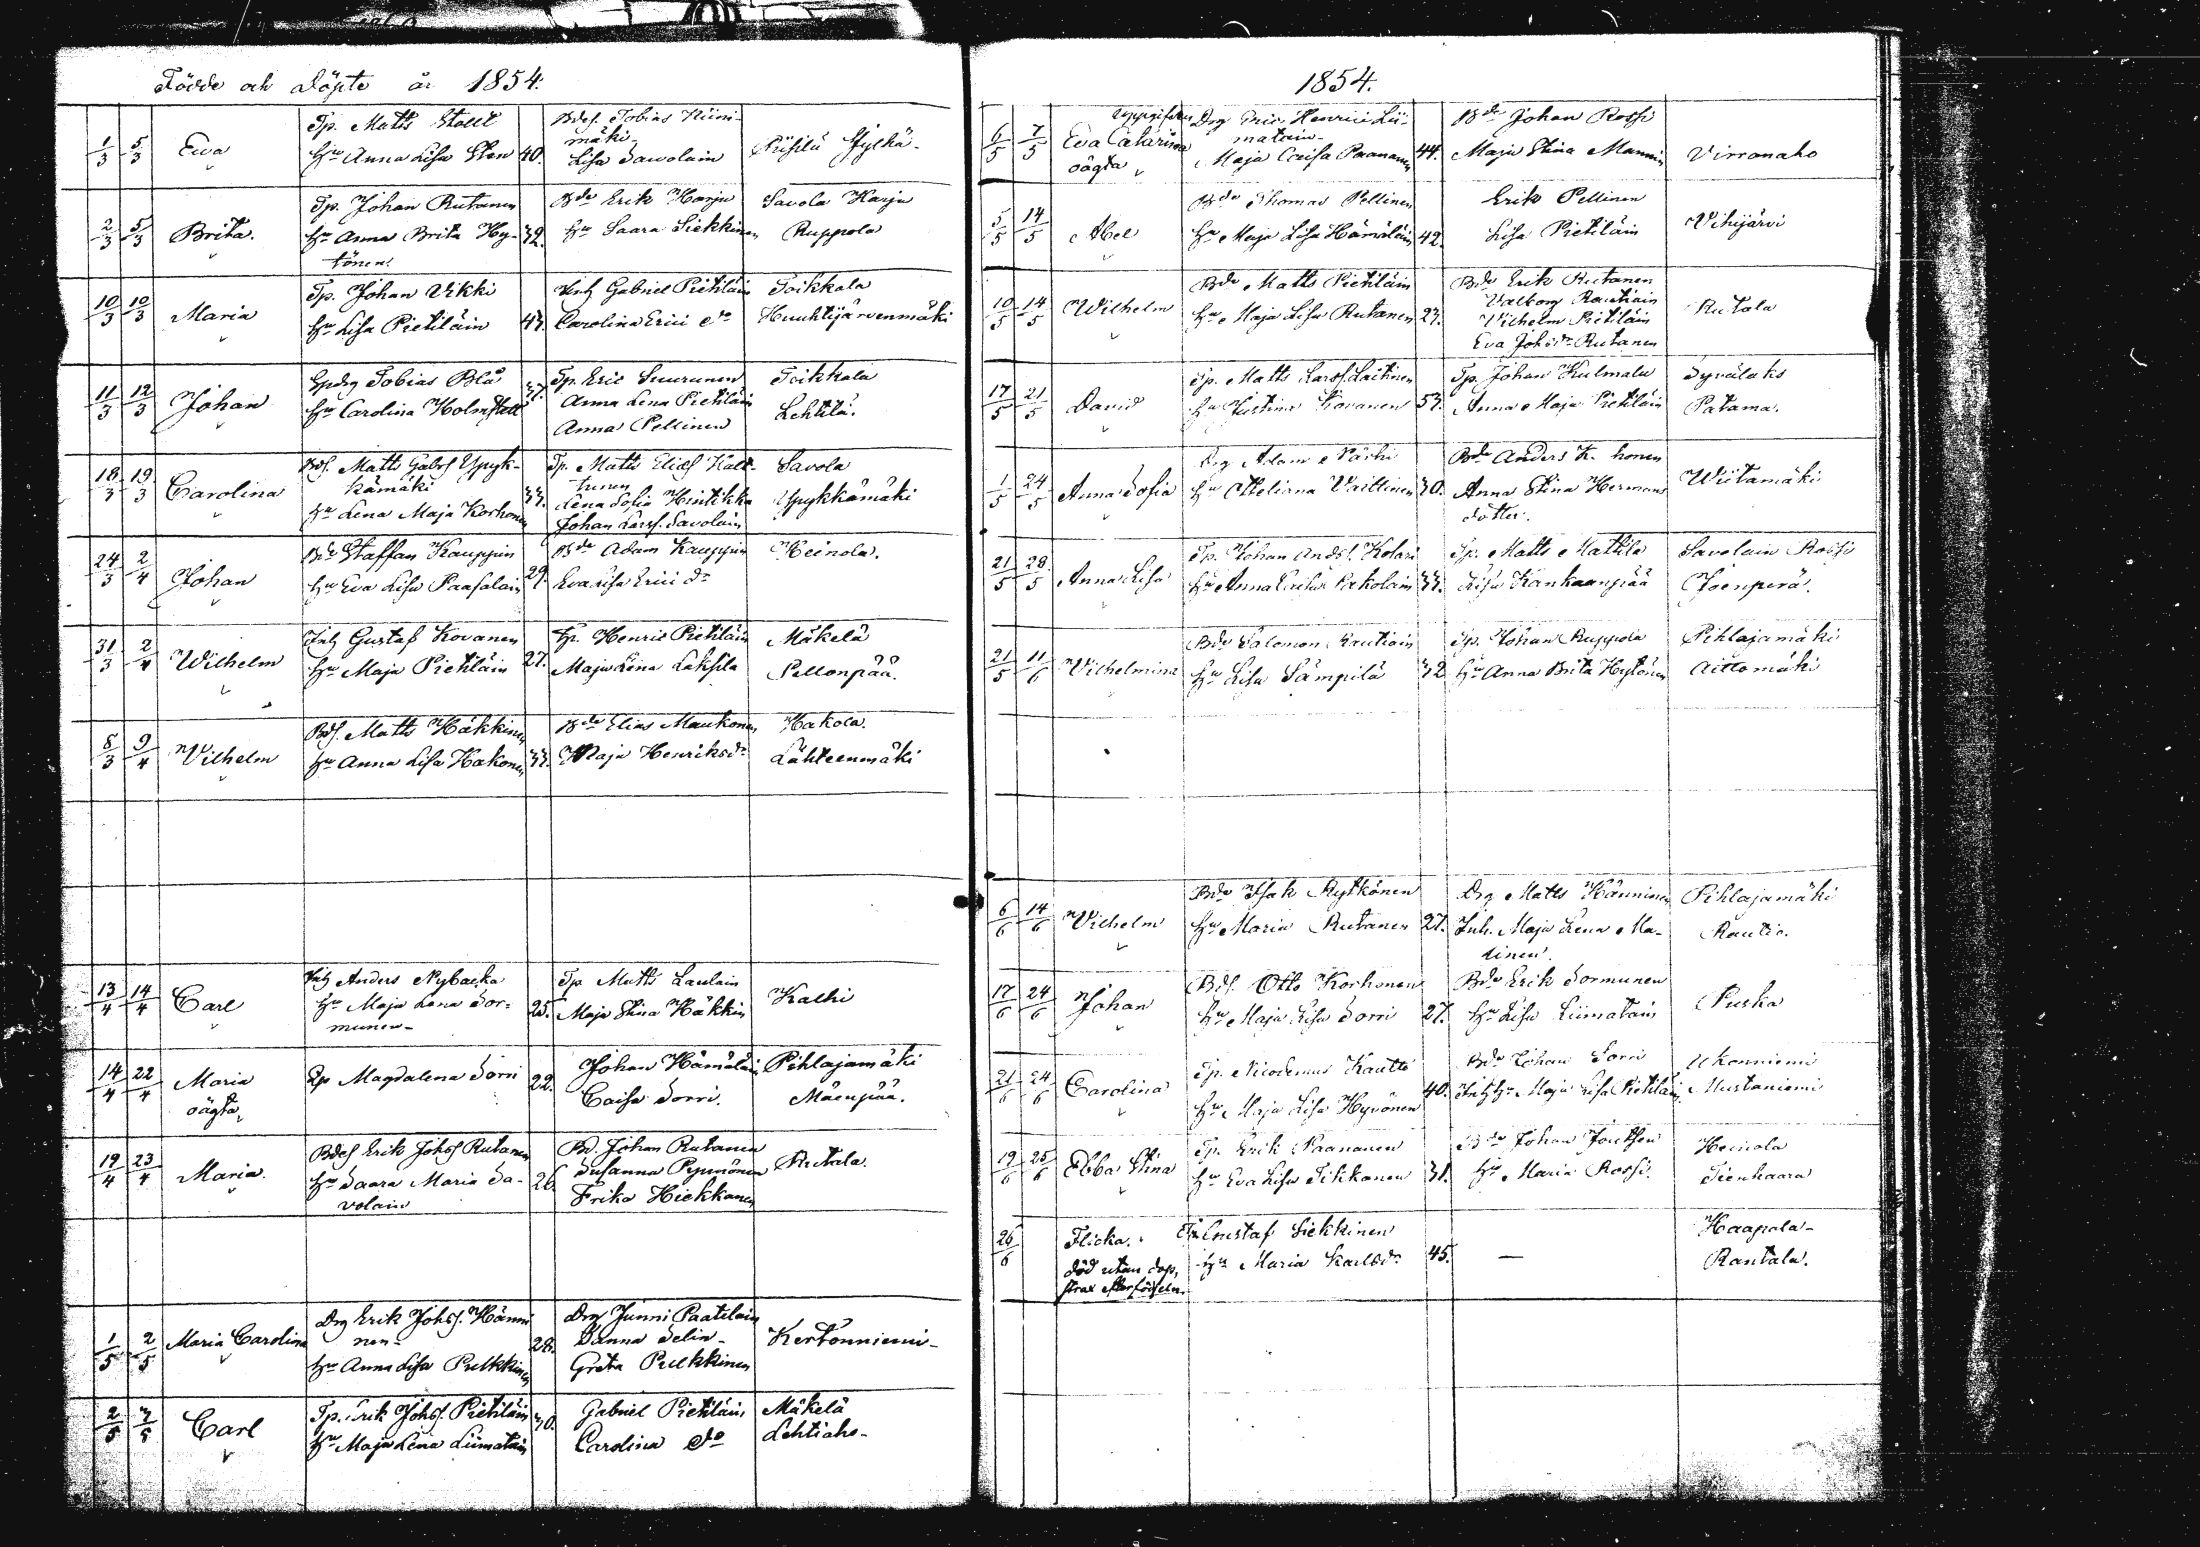 Födde och Döpte år 1854.
1/3 5/3 Eva
Tp. Matts Ståhl
Hu Anna Lisa Sten 40.
Bdes. Tobias Niini-
mäki
Lisa Savolain
Jylhä
2/3 5/3 Brita.
Tp. Johan Rutanen
Hu Anna Brita Hy- 32.
tönen.
Bde Erik Harju
Hu Saara Siekkinen
Savola Harju
Ruppola
10/3 10/3 Maria
Tp. Johan Vikki
Hu Lisa Pietiläin 43.
Inh Gabriel Pietiläin
Carolina Erici dr
Toikkala
Huuhtijärvenmäki
11/3 12/3 Johan
Tobias Blå
Hu Carolina Holmstett 37.
Tp. Eric Suurunen
Anna Lena Pietiläin
Anna Pellinen
Toikkala
Lehtilä.
18/3 19/3 Carolina
Bds. Matts Gabrs Ypyk-
kämäki
Hu Lena Maja Korhonen 33.
Tp. Matts Elias Halt-
tunen
Lena Sofia Hintikka
Johan Larss. Savolain
Savola
Ypykkämäki
24/3 2/4 Johan
Bde Staffan Kauppin
Hu Eva Lisa Paasalain 29.
Bde Adam Kauppin
Eva Lisa Erici dr
Heinola.
31/3 2/4 Wilhelm
Inh Gustaf Kovanen
Hu Maja Pietiläin 27.
Tp. Henric Pietiläin
Maja Lena Laksila
Mäkelä
Pellonpää.
8/3 9/4 Wilhelm
Bds. Matts Häkkinen
Hu Anna Lisa Hakonen 33.
Bde Elias Maukonen
Maja Henriksdr
Hakola.
Lähteenmäki
13/4 14/4 Carl
Inh Anders Nybacka
Hu Maja Lena Sor- 25.
munen-
Tp Matts Laulain
Maja Stina Häkkin
Kalhi
14/4 22/4 Maria
oägta
Qp Magdalena Sorri 22.
Johan Hämäläin
Caisa Sorri.
Pihlajamäki
Mäenpää.
19/4 23/4 Maria.
Bdes Erik Johs Rutanen
Hu Saara Maria Sa- 26.
volain
Bd. Johan Rutanen
Susanna Pynnönen
Frika Hiekkanen
Rutala.
1/5 2/5 Maria Carolina
Drg Erik Johss. Hänni
nen- 28.
Hu Anna Lisa Pulkkinen
Drg Junni Paatelain
Sanna Selin-
Greta Pulkkinen
Kertonniemi-
2/5 7/5 Carl
Tp. Erik Johss. Pietiläin 30.
Hu Maja Lena Liimatain
Gabriel Pietiläin
Carolina do
Mäkelä
Lehtiaho-
1854.
6/5 7/5 Eva Catarina
oägta
Drg Eric Henrici Lii-
matain-
Maja Caisa Paananen 44.
Bde Johan Rossi
Maja Stina Mannin
Virronaho
5/5 14/5 Abel
Bde Thomas Pellinen
Hu Maja Lisa Hämäläin 42.
Erik Pellinen
Lisa Pietiläin
Vihijärvi
10/5 14/5 Wilhelm
Bde Matts Pietiläin
Hu Maja Lisa Rutanen 23.
Bde Erik Rutanen
Valborg Rautiain
Vilhelm Pietiläin
Eva Johsdr Rutanen
Rutala
17/5 21/5 David
Tp. Matts Larss. Laitinen
Hu Justina Kovanen 37.
Tp. Johan Kulmala
Anna Maja Pietiläin
Syvälaks
Patama.
1/5 24/5 Anna Sofia
Drg Adam Närhi
Hu Otteliana Vaittinen 30.
Bde Anders K. honen
Anna Stina Hermans
dotter.
Wiitamäki
21/5 28/5 Anna Lisa
Tp. Johan Anders. Kolari
Hu Anna Pekolain 33.
Tp. Matts Mattila
Lisa Kankaanpää
Savolain Rossi
Joenperä.
21/5 11/6 Vilhelmina
Bde Salomon Rautiain
Hu Lisa Sämpilä 32
Tp. Johan Ruppola
Hu Anna Brita Hytönen
Pihlajamäki
Aittomäki
6/6 14/6 Vilhelm
Bde Isak Kytkönen
Hu Maria Rutanen 27.
Drg Matts Hänninen
Inh. Maja Lena Ma-
tinen.
Pihlajamäki
Rautio.
17/6 24/6 Johan
Bds. Otto Korhonen
Hu Maja Lisa Sorri 27.
Bde Erik Sormunen
Hu Lisa Liimatain
Puska
21/6 24/6 Carolina
Tp. Nicodemus Kautto
Hu Maja Lisa Hyvönen 40.
Bde Johan Sorri
Inh Hu Maja Lisa Pietiläin
Ukonniemi
Mustaniemi
19/6 25/6 Ebba Stina
Tp. Erik Paananen
Hu Eva Lisa Tikkanen 31.
Bde Johan Joutsen
Hu Maria Rossi.
Heinola
Tienhaara
26/6 Flicka.
död utan dop,
strax efter födseln.
Tp Gustaf Siekkinen
Hu Maria Karlsdr 45.
—
Haapala-
Rantala.